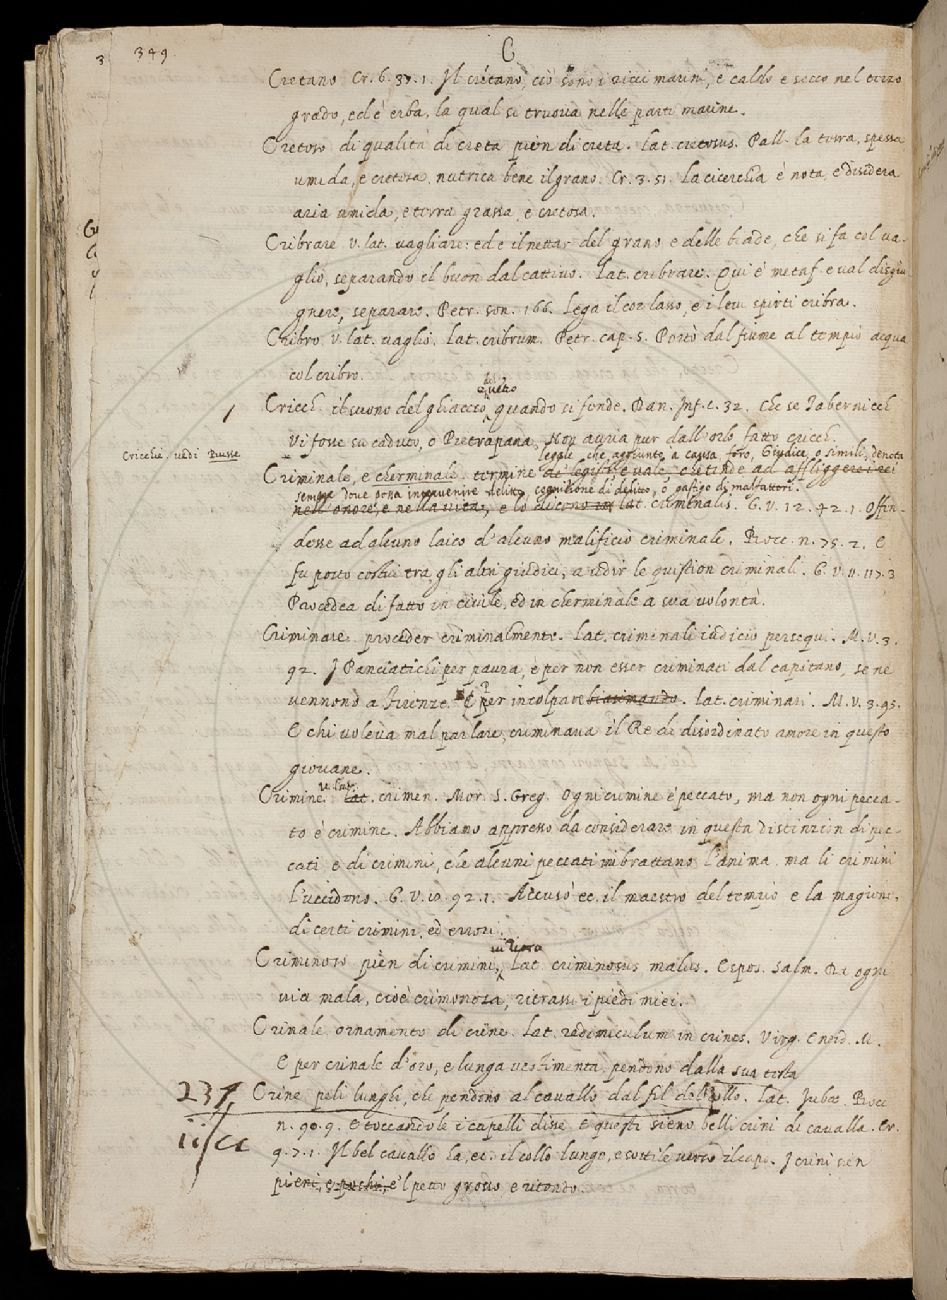 349
C
Cretano Cr. 6. 37. 1. Il cretano, ciò sono i ricci marini, è caldo e secco nel terzo
grado, ed è erba, la qual si truova nelle parti marine.
Cretoso di qualità di creta pien di creta. Lat. cretosus. Pall. la terra, spessa
umida, e cretosa, nutrica bene il grano. Cr. 3. 51. La cicerchia è nota, e disidera
aria umida, e terra grassa, e cretosa.
Cribrare v. lat. vagliare: ed è il nettar del grano e delle biade, che si fa col va-
glio, separando el buon dal cattivo. Lat. cribrare. Qui è metaf. e val disgiu
gnere, separare. Petr. son. 166. Lega il cor lasso, e i lievi spirti cribra.
Cribro v. lat. vaglio. Lat. cribrum. Petr. cap. 5. Portò dal fiume al tempio acqua
col cribro.
Cricch il suono del ghiaccio, o vetro quando si fende. Dan. Inf. c. 32. Che se Tabernicch
Vi fosse su caduto, o Pietrapana, Non avria pur dall'orlo fatto cricch.
Cricchio, vedi
legale che, aggiunto a causa, foro, Giudice, o simili, denota
Criminale, e cherminale termine de' legisti e vale che tende ad affliggere i rei
sempre dove possa intravenire delitto, cognitione di delitto, o gastigo di malfattori.
nell'onore, e nella vita, e lo dicono in lat. criminalis. G. V. 12. 42. 1. Offen-
desse ad alcuno laico d'alcuno malificio criminale. Bocc. n. 75. 2. E
fu posto costui tra gli altri giudici, a udir le quistion criminali. G. V. 11. 117. 3
Procedea di fatto in civile, ed in cherminale a sua volontà.
Criminare proceder criminalmente. Lat. criminali iudicio persequi. M. V. 3.
92. I Panciatichi per paura, e per non esser criminati dal capitano, se ne
vennono a Firenze. E per incolpare biasimando. lat. criminari. M. V. 3. 95.
E chi voleva mal parlare, criminava il Re di disordinato amore in questo
giovane.
Crimine. v. lat. lat. crimen. Mor. S. Greg. Ogni crimine è peccato, ma non ogni pecca-
to è crimine. Abbiamo appresso da considerare in questa distinzion di pec-
cati e di crimini, che alcuni peccati imbrattano l'anima, ma li crimini
l'uccidono. G. V. 10. 92. 1. Accusò ec. il maestro del tempio e la magione,
di certi crimini, ed errori.
Criminoso pien di crimini, Lat. criminosus malus. Espos. Salm. Da ogni
via mala, cioè criminosa, ritrassi i piedi miei.
Crinale ornamento di crine. Lat. redimiculum in crines. Virg. Eneid. M.
E per crinale d'oro, e lunga vestimenta, pendeno dalla sua testa
237 Crine peli lunghi, che pendono al cavallo dal fil del collo. Lat. Jubae. Bocc
n. 90. 9. E toccandole i capelli disse e questi sieno belli crini di cavalla. Cr.
9. 7. 1. Il bel cavallo ha, ec. il collo lungo, e sottile verso il capo. I crini sien
pieni, e pochi, e 'l petto grosso e ritondo.